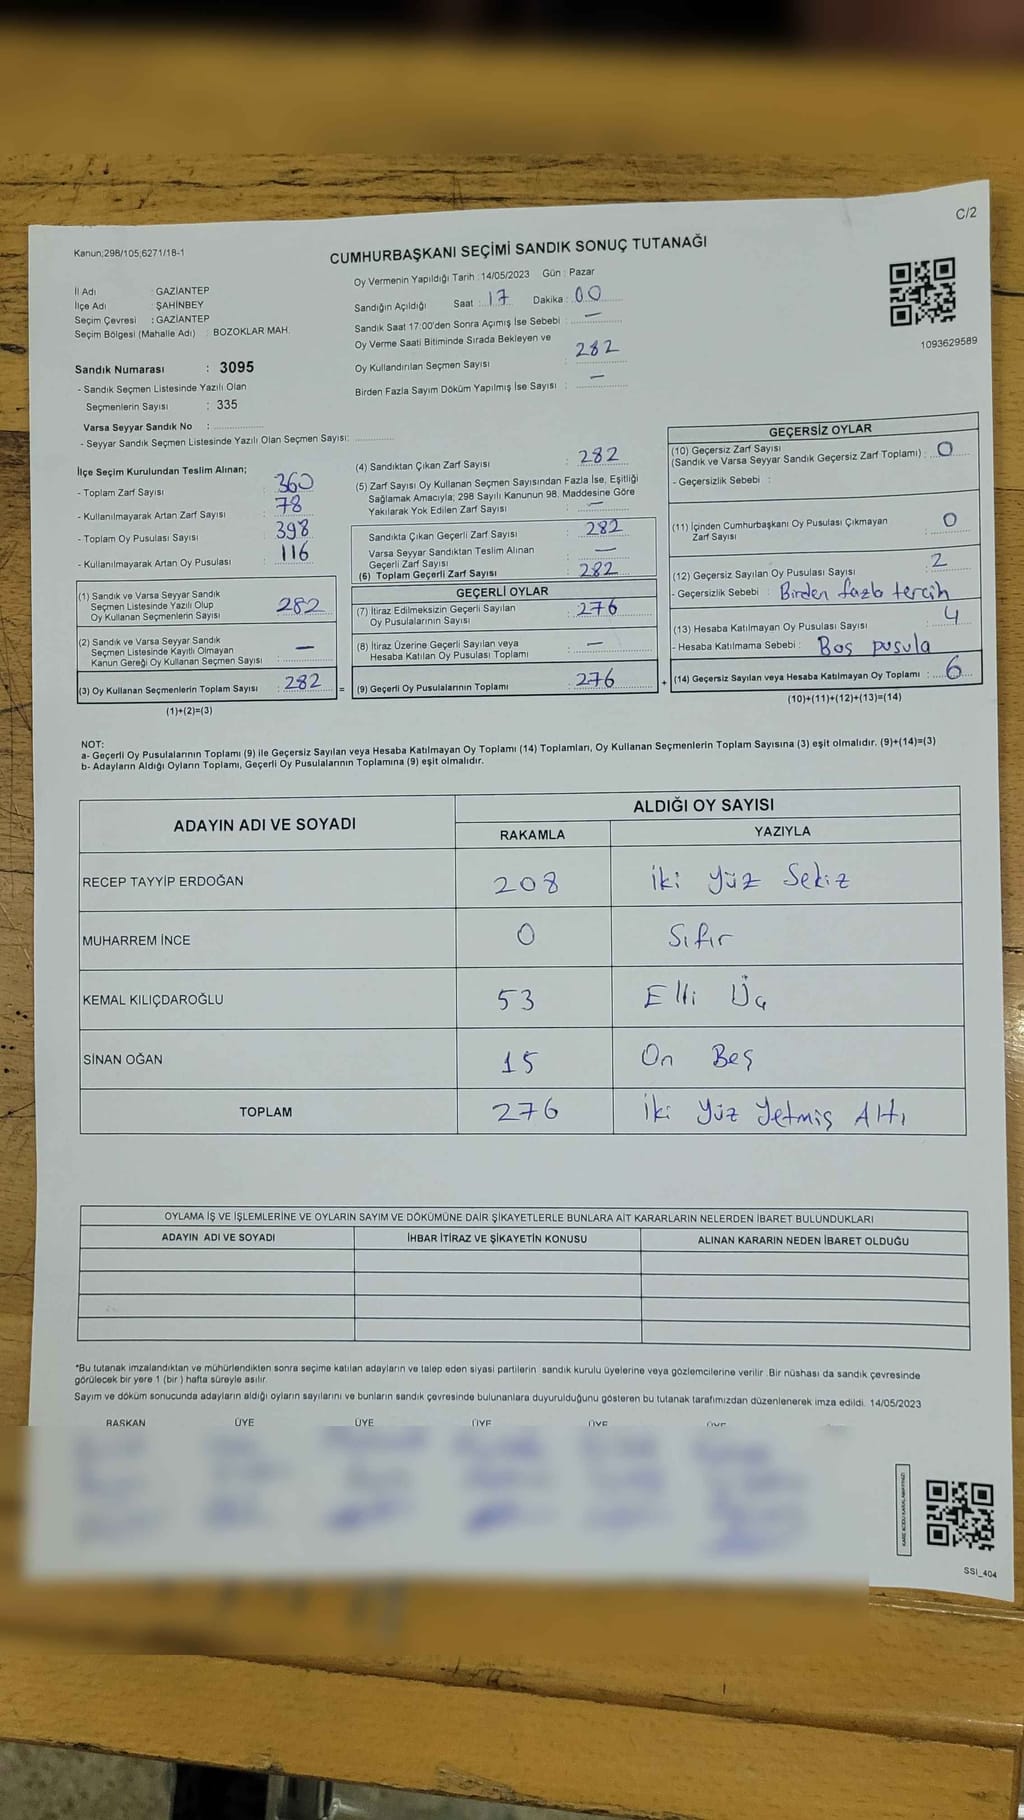 C/2
Kanun;298/105;6271/18-1
CUMHURBAŞKANI SEÇİMİ SANDIK SONUÇ TUTANAĞI
İl Adı : GAZİANTEP
İlçe Adı : ŞAHİNBEY
Seçim Çevresi : GAZİANTEP
Seçim Bölgesi (Mahalle Adı) : BOZOKLAR MAH.
Oy Vermenin Yapıldığı Tarih : 14/05/2023 Gün : Pazar
Sandığın Açıldığı Saat : 17 Dakika : 00
Sandık Saat 17:00'den Sonra Açımış İse Sebebi : —
Oy Verme Saati Bitiminde Sırada Bekleyen ve
Oy Kullandırılan Seçmen Sayısı : 282
Birden Fazla Sayım Döküm Yapılmış İse Sayısı : —
1093629589
Sandık Numarası : 3095
- Sandık Seçmen Listesinde Yazılı Olan
Seçmenlerin Sayısı : 335
Varsa Seyyar Sandık No :
- Seyyar Sandık Seçmen Listesinde Yazılı Olan Seçmen Sayısı:
İlçe Seçim Kurulundan Teslim Alınan;
- Toplam Zarf Sayısı : 360
- Kullanılmayarak Artan Zarf Sayısı : 78
- Toplam Oy Pusulası Sayısı : 398
- Kullanılmayarak Artan Oy Pusulası : 116
(1) Sandık ve Varsa Seyyar Sandık
Seçmen Listesinde Yazılı Olup
Oy Kullanan Seçmenlerin Sayısı : 282
(2) Sandık ve Varsa Seyyar Sandık
Seçmen Listesinde Kayıtlı Olmayan
Kanun Gereği Oy Kullanan Seçmen Sayısı : —
(3) Oy Kullanan Seçmenlerin Toplam Sayısı : 282
(1)+(2)=(3)
(4) Sandıktan Çıkan Zarf Sayısı : 282
(5) Zarf Sayısı Oy Kullanan Seçmen Sayısından Fazla İse, Eşitliği
Sağlamak Amacıyla; 298 Sayılı Kanunun 98. Maddesine Göre
Yakılarak Yok Edilen Zarf Sayısı : —
Sandıkta Çıkan Geçerli Zarf Sayısı : 282
Varsa Seyyar Sandıktan Teslim Alınan
Geçerli Zarf Sayısı : —
(6) Toplam Geçerli Zarf Sayısı : 282
GEÇERLİ OYLAR
(7) İtiraz Edilmeksizin Geçerli Sayılan
Oy Pusulalarının Sayısı : 276
(8) İtiraz Üzerine Geçerli Sayılan veya
Hesaba Katılan Oy Pusulası Toplamı : —
= (9) Geçerli Oy Pusulalarının Toplamı : 276
GEÇERSİZ OYLAR
(10) Geçersiz Zarf Sayısı
(Sandık ve Varsa Seyyar Sandık Geçersiz Zarf Toplamı) : 0
- Geçersizlik Sebebi :
(11) İçinden Cumhurbaşkanı Oy Pusulası Çıkmayan
Zarf Sayısı : 0
(12) Geçersiz Sayılan Oy Pusulası Sayısı : 2
- Geçersizlik Sebebi : Birden fazla tercih
(13) Hesaba Katılmayan Oy Pusulası Sayısı : 4
- Hesaba Katılmama Sebebi : Boş pusula
+ (14) Geçersiz Sayılan veya Hesaba Katılmayan Oy Toplamı : 6
(10)+(11)+(12)+(13)=(14)
NOT:
a- Geçerli Oy Pusulalarının Toplamı (9) ile Geçersiz Sayılan veya Hesaba Katılmayan Oy Toplamı (14) Toplamları, Oy Kullanan Seçmenlerin Toplam Sayısına (3) eşit olmalıdır. (9)+(14)=(3)
b- Adayların Aldığı Oyların Toplamı, Geçerli Oy Pusulalarının Toplamına (9) eşit olmalıdır.
ADAYIN ADI VE SOYADI ALDIĞI OY SAYISI
RAKAMLA YAZIYLA
RECEP TAYYİP ERDOĞAN 208 İki Yüz Sekiz
MUHARREM İNCE 0 Sıfır
KEMAL KILIÇDAROĞLU 53 Elli Üç
SİNAN OĞAN 15 On Beş
TOPLAM 276 İki Yüz Yetmiş Altı
OYLAMA İŞ VE İŞLEMLERİNE VE OYLARIN SAYIM VE DÖKÜMÜNE DAİR ŞİKAYETLERLE BUNLARA AİT KARARLARIN NELERDEN İBARET BULUNDUKLARI
ADAYIN ADI VE SOYADI İHBAR İTİRAZ VE ŞİKAYETİN KONUSU ALINAN KARARIN NEDEN İBARET OLDUĞU
*Bu tutanak imzalandıktan ve mühürlendikten sonra seçime katılan adayların ve talep eden siyasi partilerin sandık kurulu üyelerine veya gözlemcilerine verilir. Bir nüshası da sandık çevresinde
görülecek bir yere 1 (bir ) hafta süreyle asılır.
Sayım ve döküm sonucunda adayların aldığı oyların sayılarını ve bunların sandık çevresinde bulunanlara duyurulduğunu gösteren bu tutanak tarafımızdan düzenlenerek imza edildi. 14/05/2023
BAŞKAN ÜYE ÜYE ÜYE ÜYE ÜYE
SSI_404